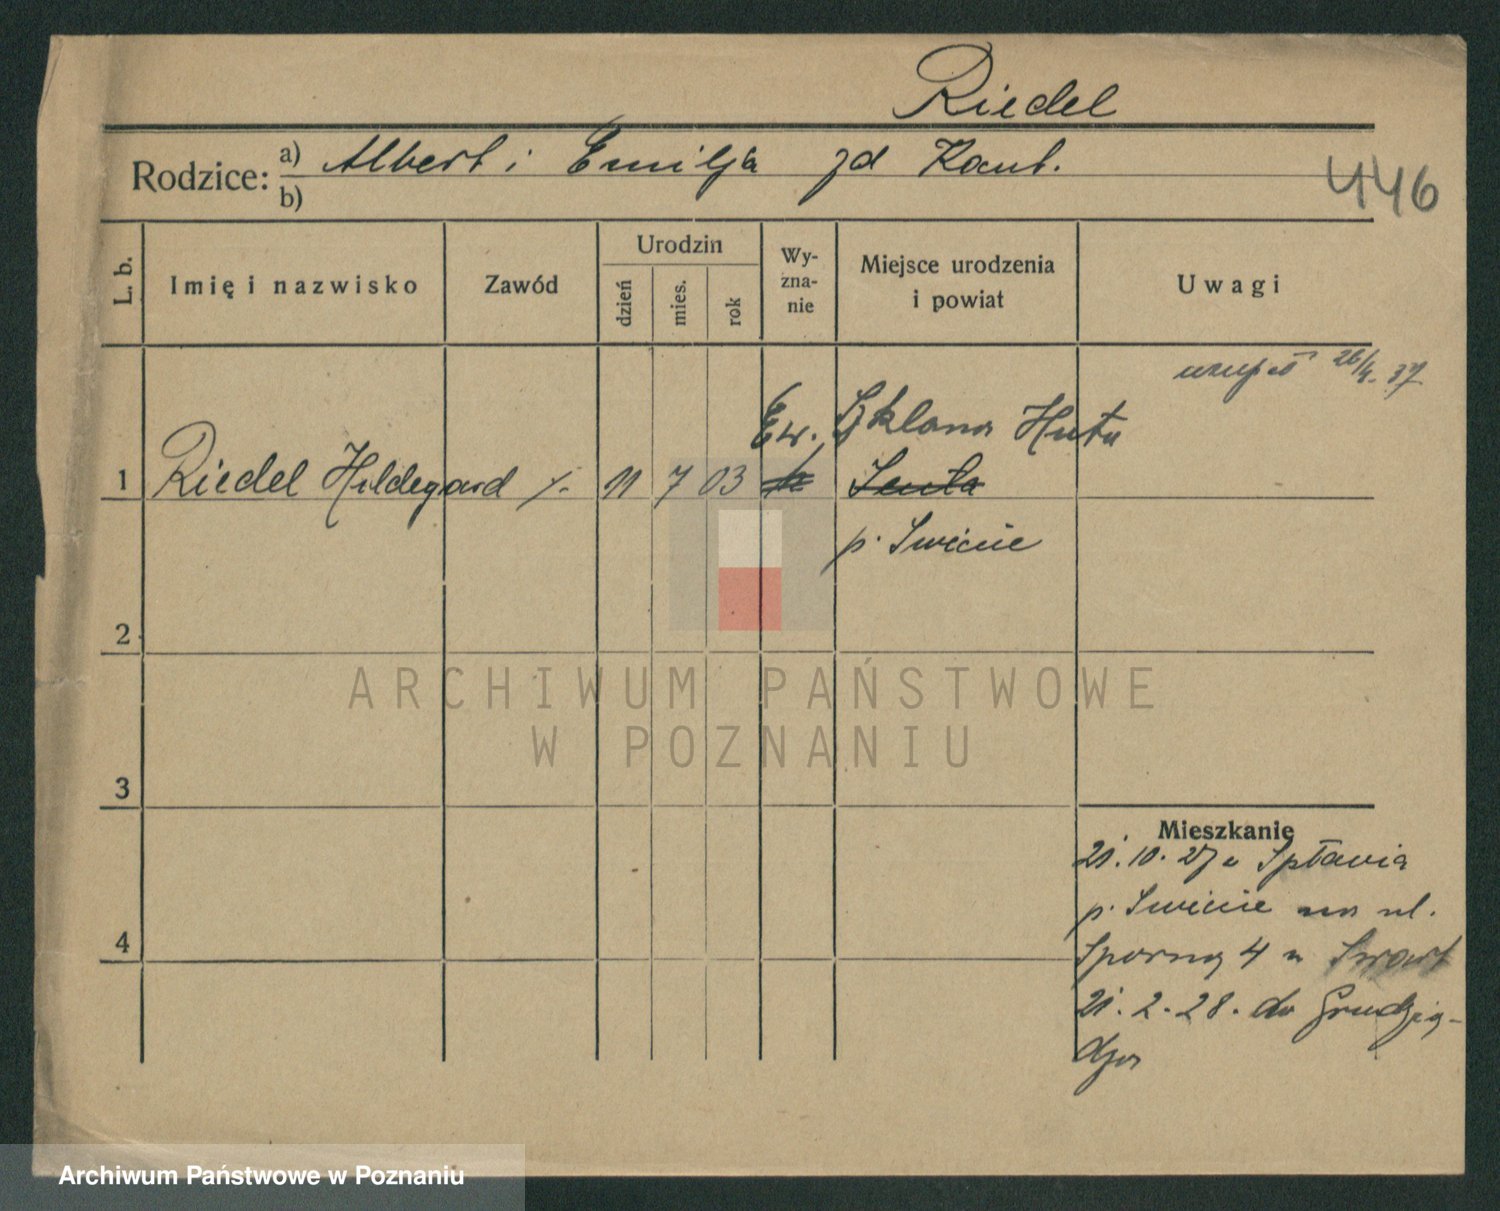 Riedel
Rodzice: a) Albert i Emilja zd Kant.
b)
446
L. b.
Imię i nazwisko
Zawód
Urodzin
dzień
mies.
rok
Wy-
zna-
nie
Miejsce urodzenia
i powiat
Uwagi
26/4. 37
Ew. Szklana Huta
1 Riedel Hildegard 11 7 03
p. Swiecie
2
ARCHIWUM PAŃSTWOWE
W POZNANIU
3
Mieszkanie
21. 10. 27 z Spławia
p. Swiecie na ul.
4
Sporną 4 u
21. 2. 28. do Grudzią-
dza
Archiwum Państwowe w Poznaniu